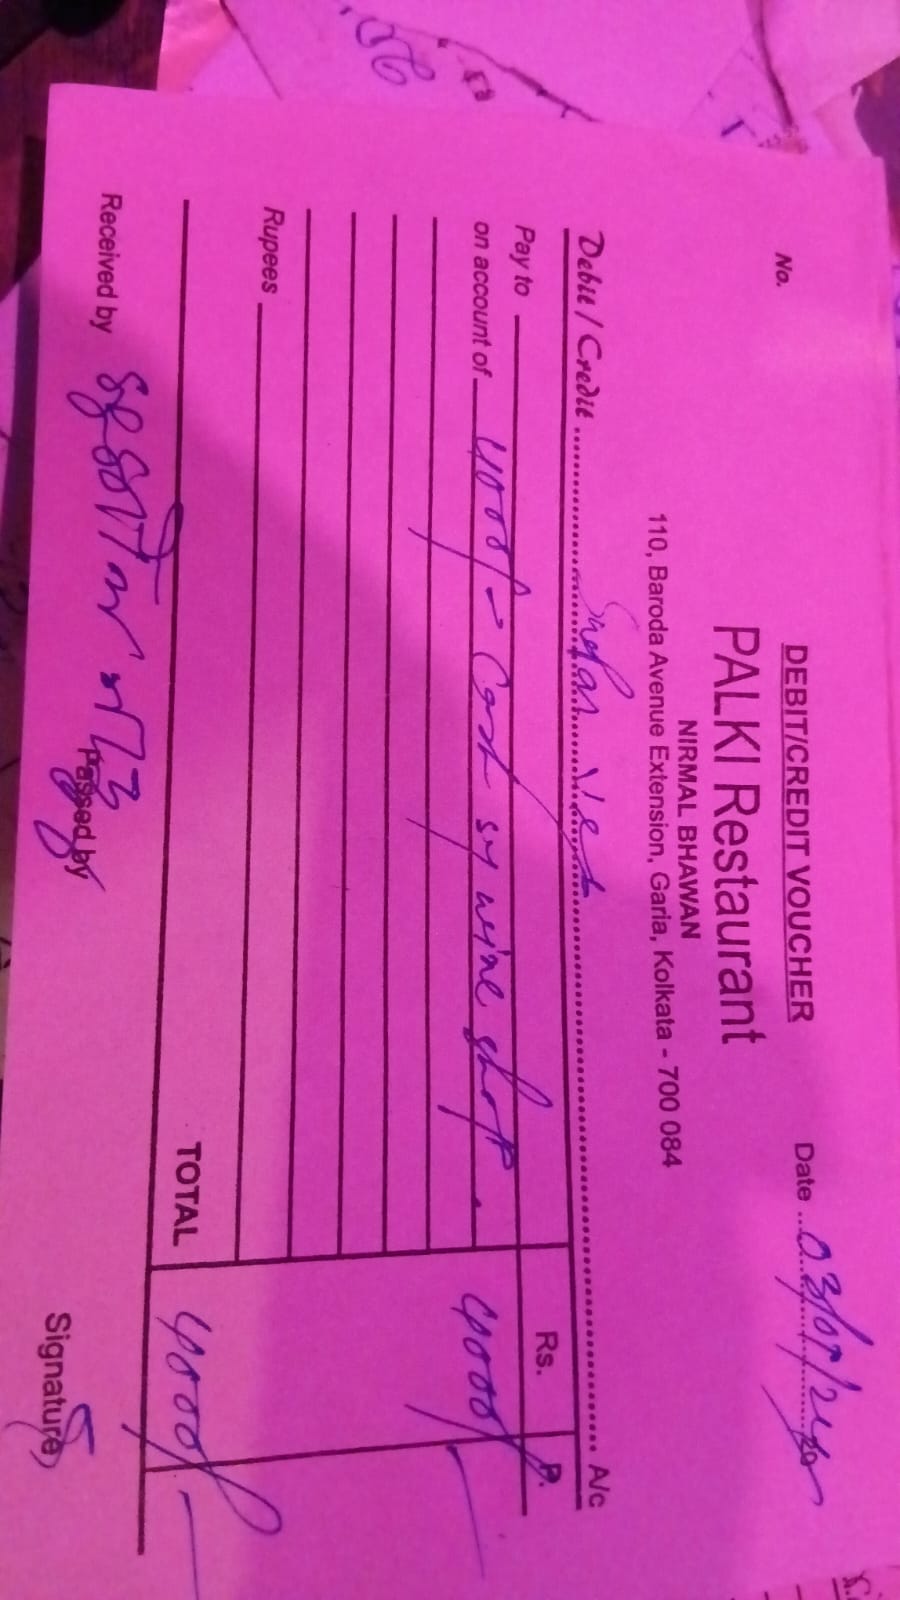 DEBIT/CREDIT VOUCHER
No.
Date
PALKI Restaurant
NIRMAL BHAWAN
110, Baroda Avenue Extension, Garia, Kolkata - 700 084
Debit / Credit A/c
Pay to
Rs. P.
on account of 4000/- Cash by wine shop. 4000/-
Rupees
TOTAL 4000/-
Received by
Passed by
Signature